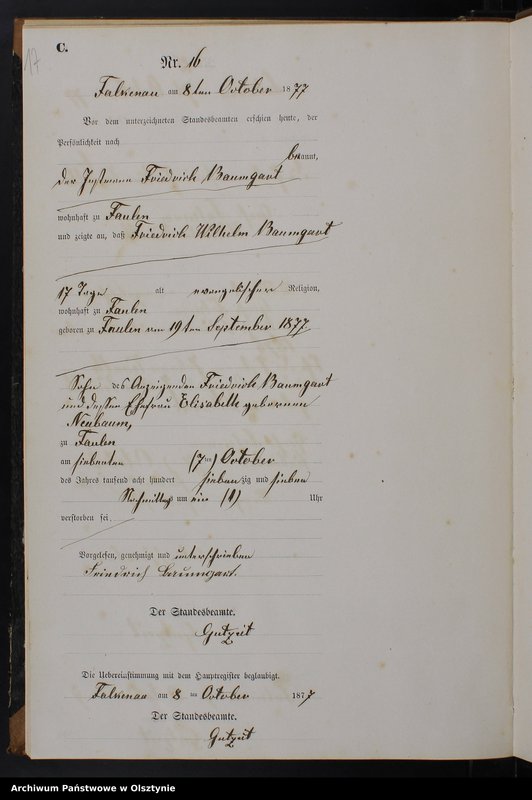 17
C.
Nr. 16
Falkenau am 8ten October 1877
Vor dem unterzeichneten Standesbeamten erschien heute, der
Persönlichkeit nach
bekannt,
der Instmann Friedrich Baumgart
wohnhaft zu Faulen
und zeigte an, daß Friedrich Wilhelm Baumgart
17 Tage alt evangelischer Religion,
wohnhaft zu Faulen
geboren zu Faulen am 19ten September 1877
Sohn des Anzeigenden Friedrich Baumgart
und dessen Ehefrau Elisabeth geborenen
Neubaum,
zu Faulen
am siebenten (7ten) October
des Jahres tausend acht hundert siebenzig und sieben
Nachmittags um ein (1) Uhr
verstorben sei.
Vorgelesen, genehmigt und unterschrieben
Friedrich Baumgart.
Der Standesbeamte.
Gutzeit
Die Uebereinstimmung mit dem Hauptregister beglaubigt.
Falkenau am 8 ten October 1877
Der Standesbeamte.
Gutzeit
Archiwum Państwowe w Olsztynie